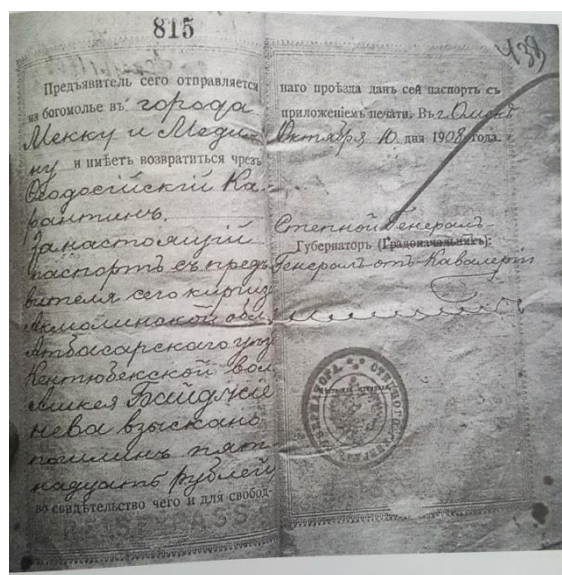 815
438
Предъявитель сего отправляется
на богомолье въ города
Мекку и Меди-
ну и имѣетъ возвратиться чрезъ
Ѳеодосійскій Ка-
рантинъ.
За настоящій
паспортъ съ предъ-
явителя сего киргиза
Акмолинской обл.
Атбасарскаго уѣз.
Кентюбекской вол.
нева взыскано
пошлинъ пят-
надцать рублей
во свидѣтельство чего и для свобод-
REISEPASS
наго проѣзда данъ сей паспортъ съ
приложеніемъ печати. Въ г. Омскъ
Октября 10 дня 1908 года.
Степной Генералъ-
Губернаторъ (Градоначальникъ):
Генералъ отъ Кавалеріи